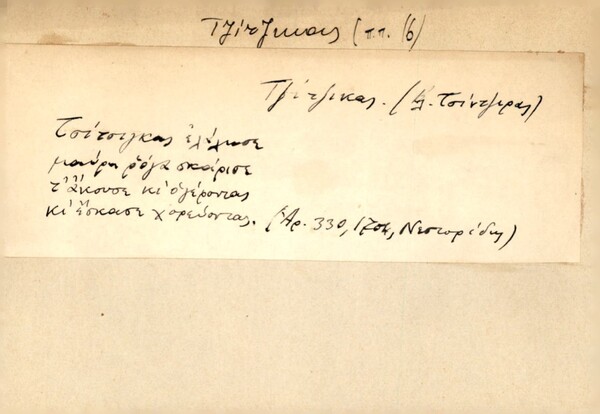 Τζίτζικας (π.π. 16)
Τζίτζικας. (κ. Τσίντζιρας)
Τσίτσιγκας ἐλάλησε
μαύρη ρόγα σκάρισε
τ' ἄκουσε κι ὁ γέροντας
κι ἔσκασε χορεύοντας. (Ἀρ. 330, Νεστορίδης)